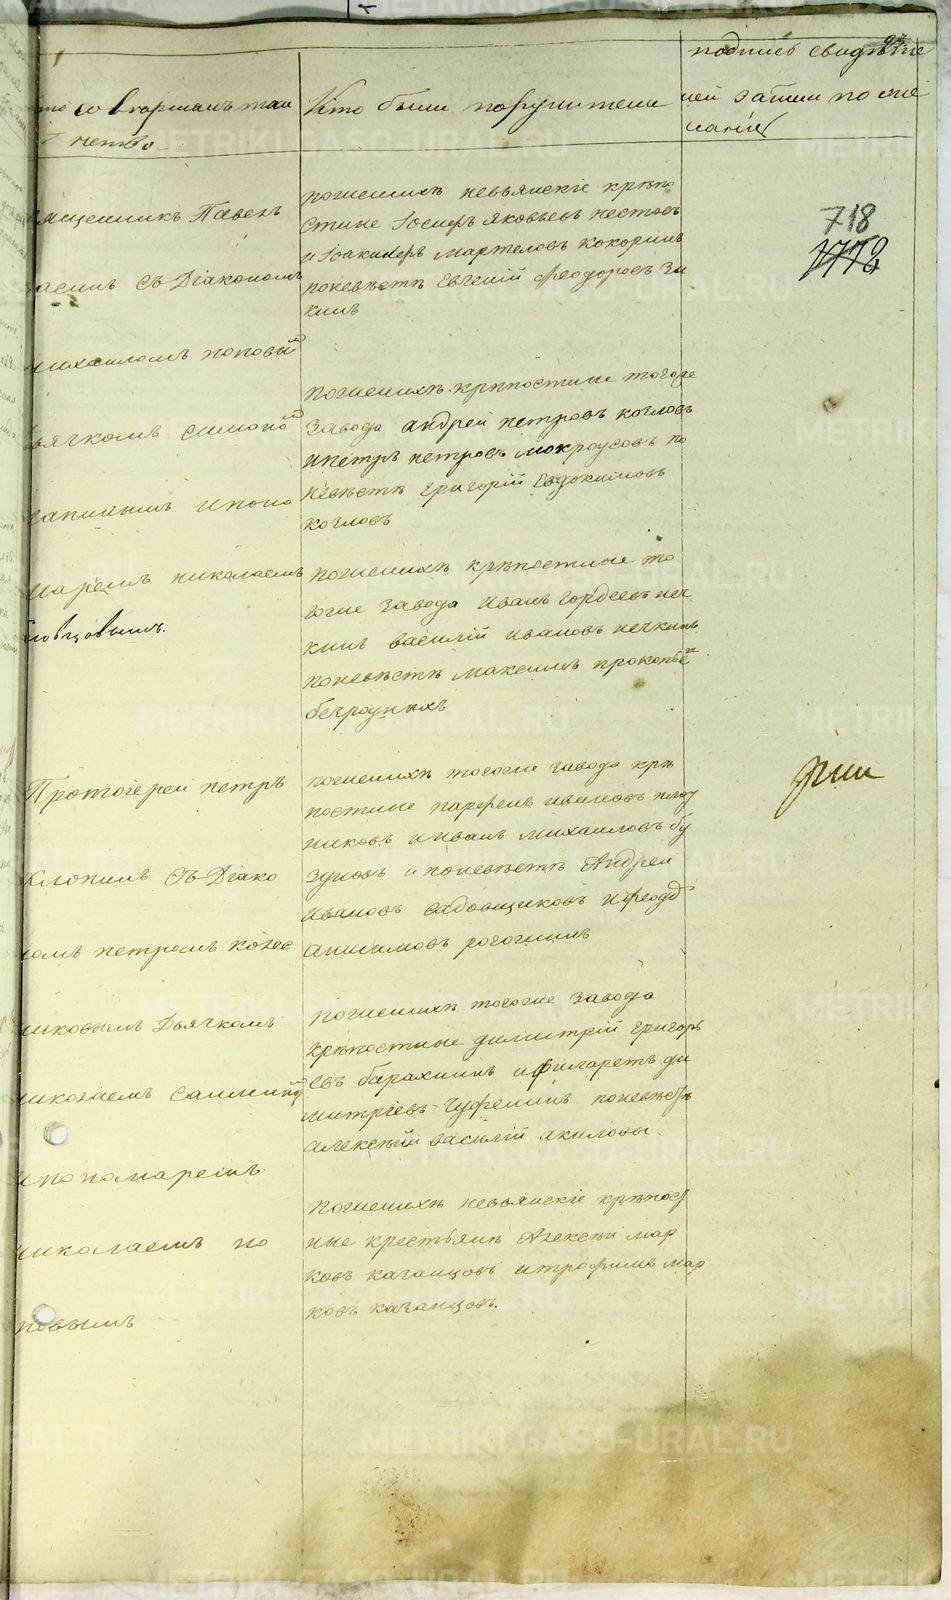 подпись свидѣте
то совершалъ таи
нство
Кто были поручители
лей записи по же
ланію
718
1772
священникъ Павелъ
съ Діакономъ
михаиломъ поповымъ
дьячкомъ симоно
и поно
маремъ николаемъ
повцовымъ.
по женихѣ невьянскіе крѣпо
стные Іосифъ Яковлевъ шестовъ
и Іоакимъ мартеловъ кокоринъ
по невѣстѣ Евгеній Феодоровъ зы
кинъ
по женихѣ крѣпостные тогоже
завода андрей петровъ козловъ
и петръ петровъ мокроусовъ по
невѣстѣ григорій Евдокимовъ
козловъ
по женихѣ крѣпостные то
гоже завода иванъ гордеевъ печ
кинъ василій ивановъ печкинъ
по невѣстѣ максимъ прокопье
безроуныхъ
Протоіерей петръ
Хлопинъ съ Діако
номъ петромъ колес
никовымъ Дьячкомъ
николаемъ
и пономаремъ
николаемъ по
повымъ
по женихѣ тогоже завода крѣ
постные парфенъ ивановъ плот
никовъ и иванъ михаиловъ бу
зуновъ и по невѣстѣ Андрей
ивановъ садовщиковъ и феодоръ
анисимовъ рогожинъ
по женихѣ тогоже завода
крѣпостные димитрій григорь
евъ барахнинъ и филаретъ ди
митріевъ по невѣстѣ
алексѣй василій акиловы
по женихѣ невьянскіе крѣпост
ные крестьянѣ Алексѣй мар
ковъ казанцовъ и трофимъ мар
ковъ казанцовъ.
METRIKI.GASO-URAL.RU